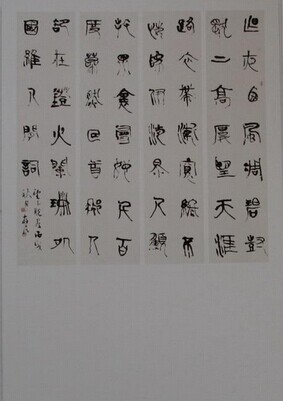 昨夜西風凋碧樹
獨上高樓望天涯
路衣帶漸寬終不
悔為伊消得人顦
悴衆裏尋他千百
度驀然回首那人
卻在鐙火闌珊処
國維人間詞